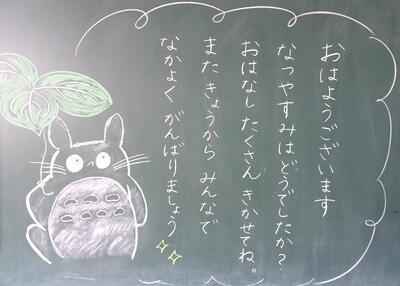 おはようございます
なつやすみはどうでしたか?
おはなしたくさん きかせてね。
また きょうから みんなで
なかよく がんばりましょう